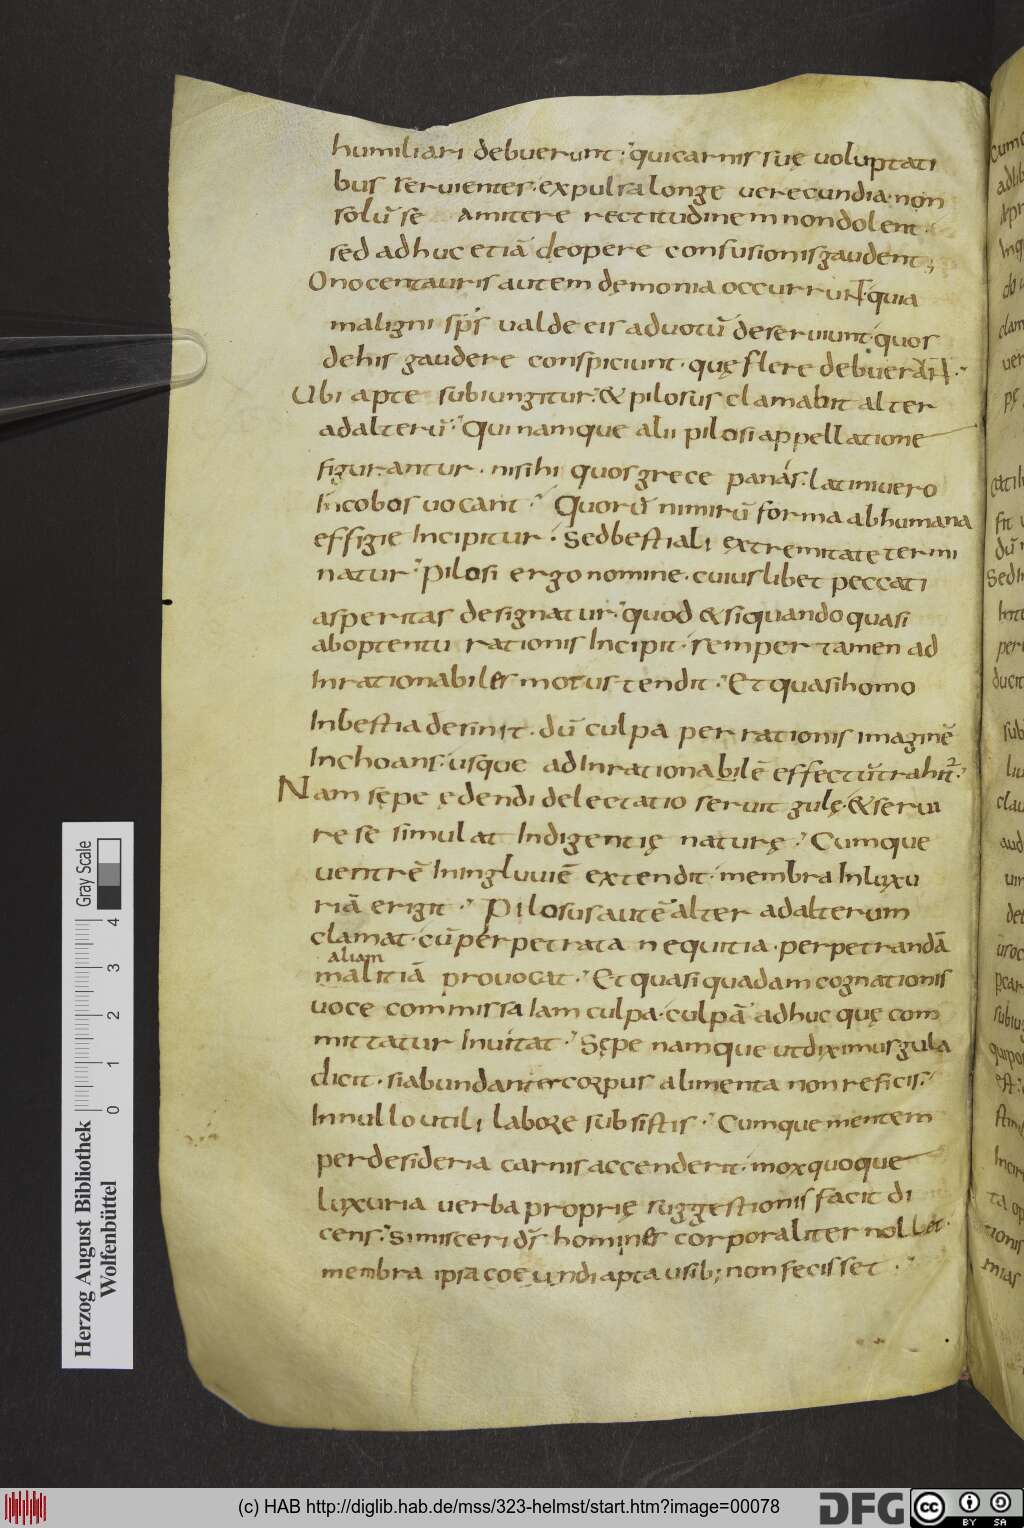 humiliari debuerunt · qui carnis suę voluptati
bus servientes · expulsa longe verecundia · non
solū se amittere rectitudinem non dolent ·
sed adhuc etiā de opere confusionis gaudent ;
Onocentauris autem dęmonia occurrunt · quia
maligni sp̄s valde eis ad votū deserviunt · quos
de his gaudere conspiciunt · quę flere debuerant ·
Ubi apte subiungitur · & pilosus clamabit alter
ad alterū · Qui namque alii pilosi appellatione
figurantur · nisi hi quos grece panas · latini vero
Incobos vocant · Quorū nimirū forma ab humana
effigie Incipitur · Sed bestiali extremitate termi
natur · Pilosi ergo nomine · cuiuslibet peccati
asperitas designatur · quod & si quando quasi
ab optentu rationis Incipit · semper tamen ad
Inrationabiles motus tendit · Et quasi homo
In bestia desinit · dū culpa per rationis imaginē
Inchoans · usque ad Inrationabilē effectū trahit ·
Nam sępe ędendi delectatio servit gulę · & servi
re se simulat Indigentię naturę · Cumque
ventrē In ingluviē extendit · membra In luxu
riā erigit · Pilosus autē alter ad alterum
clamat · cū perpetrata nequitia · perpetrandā
aliam
malitiā provocat · Et quasi quadam cognationis
voce commissa Iam culpa · culpā adhuc quę com
mittatur Invitat · Sępe namque ut diximus gula
dicit · si abundanter corpus alimenta non reficis ·
In nullo utili labore subsistis · Cumque mentem
per desideria carnis accenderit · mox quoque
luxuria verba proprię suggestionis facit di
cens · Si misceri dš homines corporaliter nollet ·
membra ipsa coeundi apta usib; non fecisset ·
Herzog August Bibliothek
Wolfenbüttel
Gray Scale
0 1 2 3 4
(c) HAB http://diglib.hab.de/mss/323-helmst/start.htm?image=00078
DFG
cc
BY SA